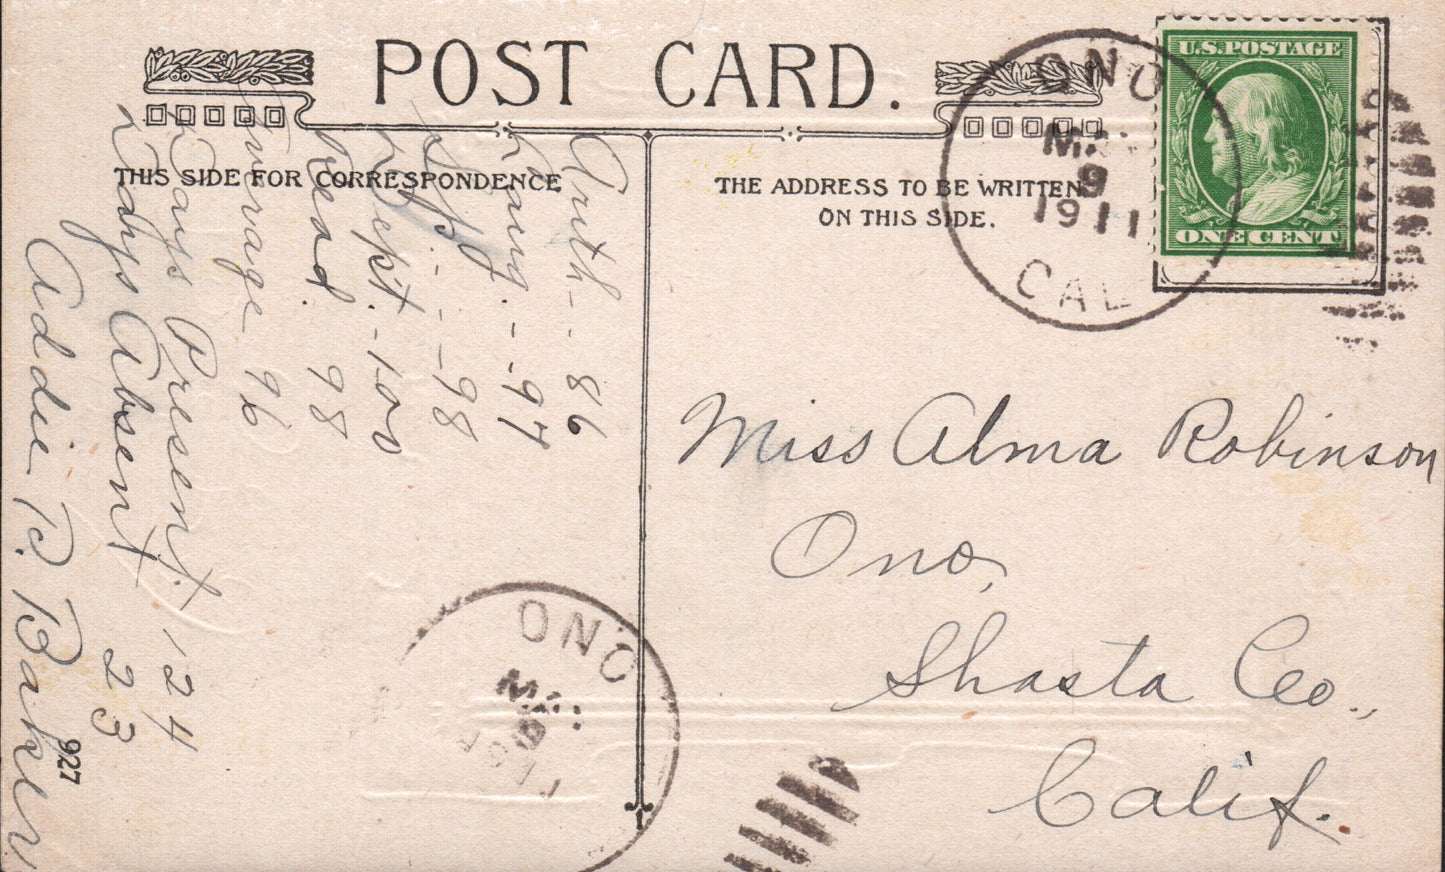 POST CARD.
THIS SIDE FOR CORRESPONDENCE
THE ADDRESS TO BE WRITTEN
ON THIS SIDE.
U.S. POSTAGE
ONE CENT
ONO
9
1911
CAL
Arith - - 86
Lang. - - 97
Spg. - - - 98
Dept. - 100
Read. 98
Average 96
Days Present. 24
Days Absent 23
Addie P. Baker
927
Miss Alma Robinson
Ono,
Shasta Co.,
Calif.
ONO
9